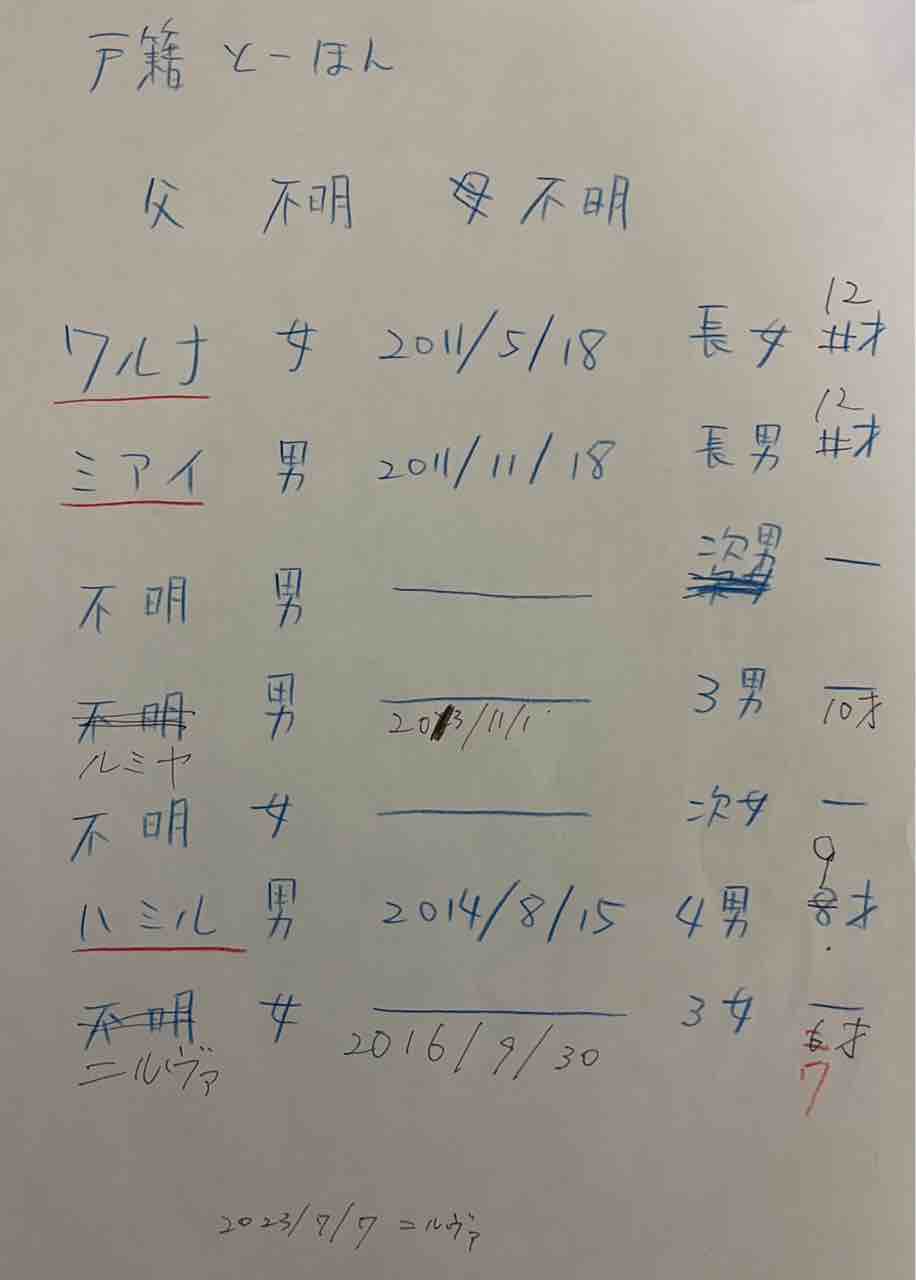 戸籍 とーほん
父 不明 母 不明
12
ワルナ 女 2011/5/18 長女 才
12
ミアイ 男 2011/11/18 長男 才
次男
不明 男 —
不明 男 — 3男 —
ルミヤ 2013/11/1 10才
不明 女 — 次女 —
9
ハミル 男 2014/8/15 4男 8才
不明 女 — 3女 —
ニルヴァ 2016/9/30 6才
7
2023/7/7 ニルヴァ